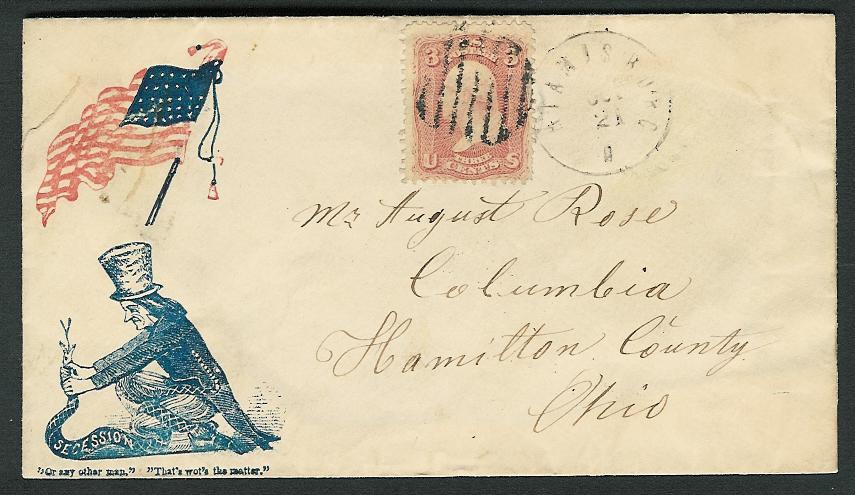 3 3
U S
CENTS
MIAMISBURG
21
O
Mr August Rose
Columbia
Hamilton County
Ohio
SECESSION
"Or any other man." "That's wot's the matter."